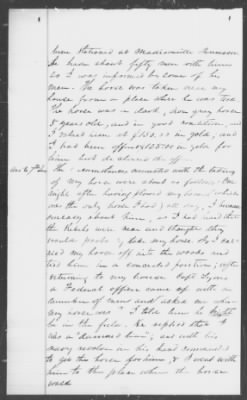 were stationed at Madisonville Tennessee
He had about fifty men with him
so I was informed by some of the
men. The horse was taken near my
house from a place where he was tied
The horse was a dark iron gray horse
5 years old, and in good condition, and
I valued him at $150.00 in gold, and
I had been offered $125.00 in gold for
him but declined the offer.
Ans to 7th Int The circumstances connected with the taking
of my horse were about as follows: One
night after having plowed my horse which
was the only horse I had, all day, I became
uneasy about him, as I had heard that
the Rebels were near and thought they
would probably take my horse. So I car-
ried my horse off into the woods and
tied him in a concealed position; after
returning to my house Capt Lyons
a Federal officer came up with a
number of men and asked me where
my horse was. I told him he might
be in the field. He replied that it
was a "damned lie"; and with his
navy revolver on his head commanded
to get the horse for him, & I went with
him to the place where the horse
was